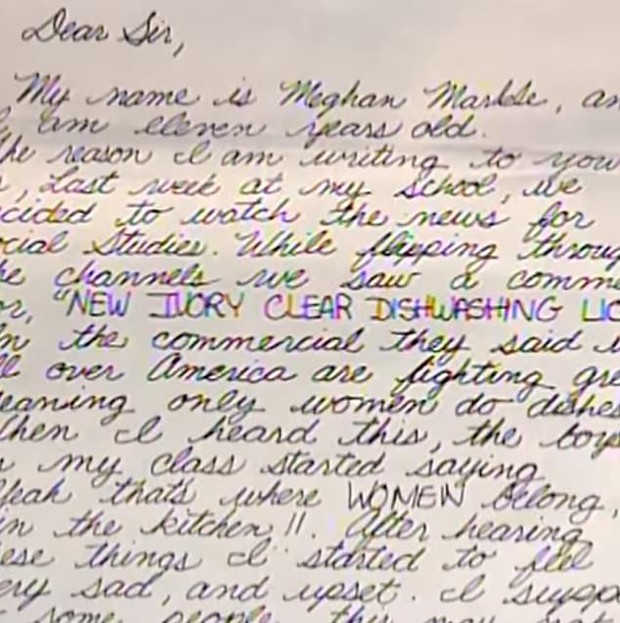 Dear Sir,
My name is Meghan Markle, an
I am eleven years old.
he reason I am writing to you
s, Last week at my school, we
cided to watch the news for
ocial Studies. While flipping throug
he channels we saw a comme
or, "NEW IVORY CLEAR DISHWASHING LIQ
In the commercial they said
ll over America are fighting gre
eaning only women do dishes
hen I heard this, the boys
my class started saying
Yeah that's where WOMEN belong,
in the kitchen!!. After hearing
ese things I started to feel
ery sad, and upset. I suppo
some people this may